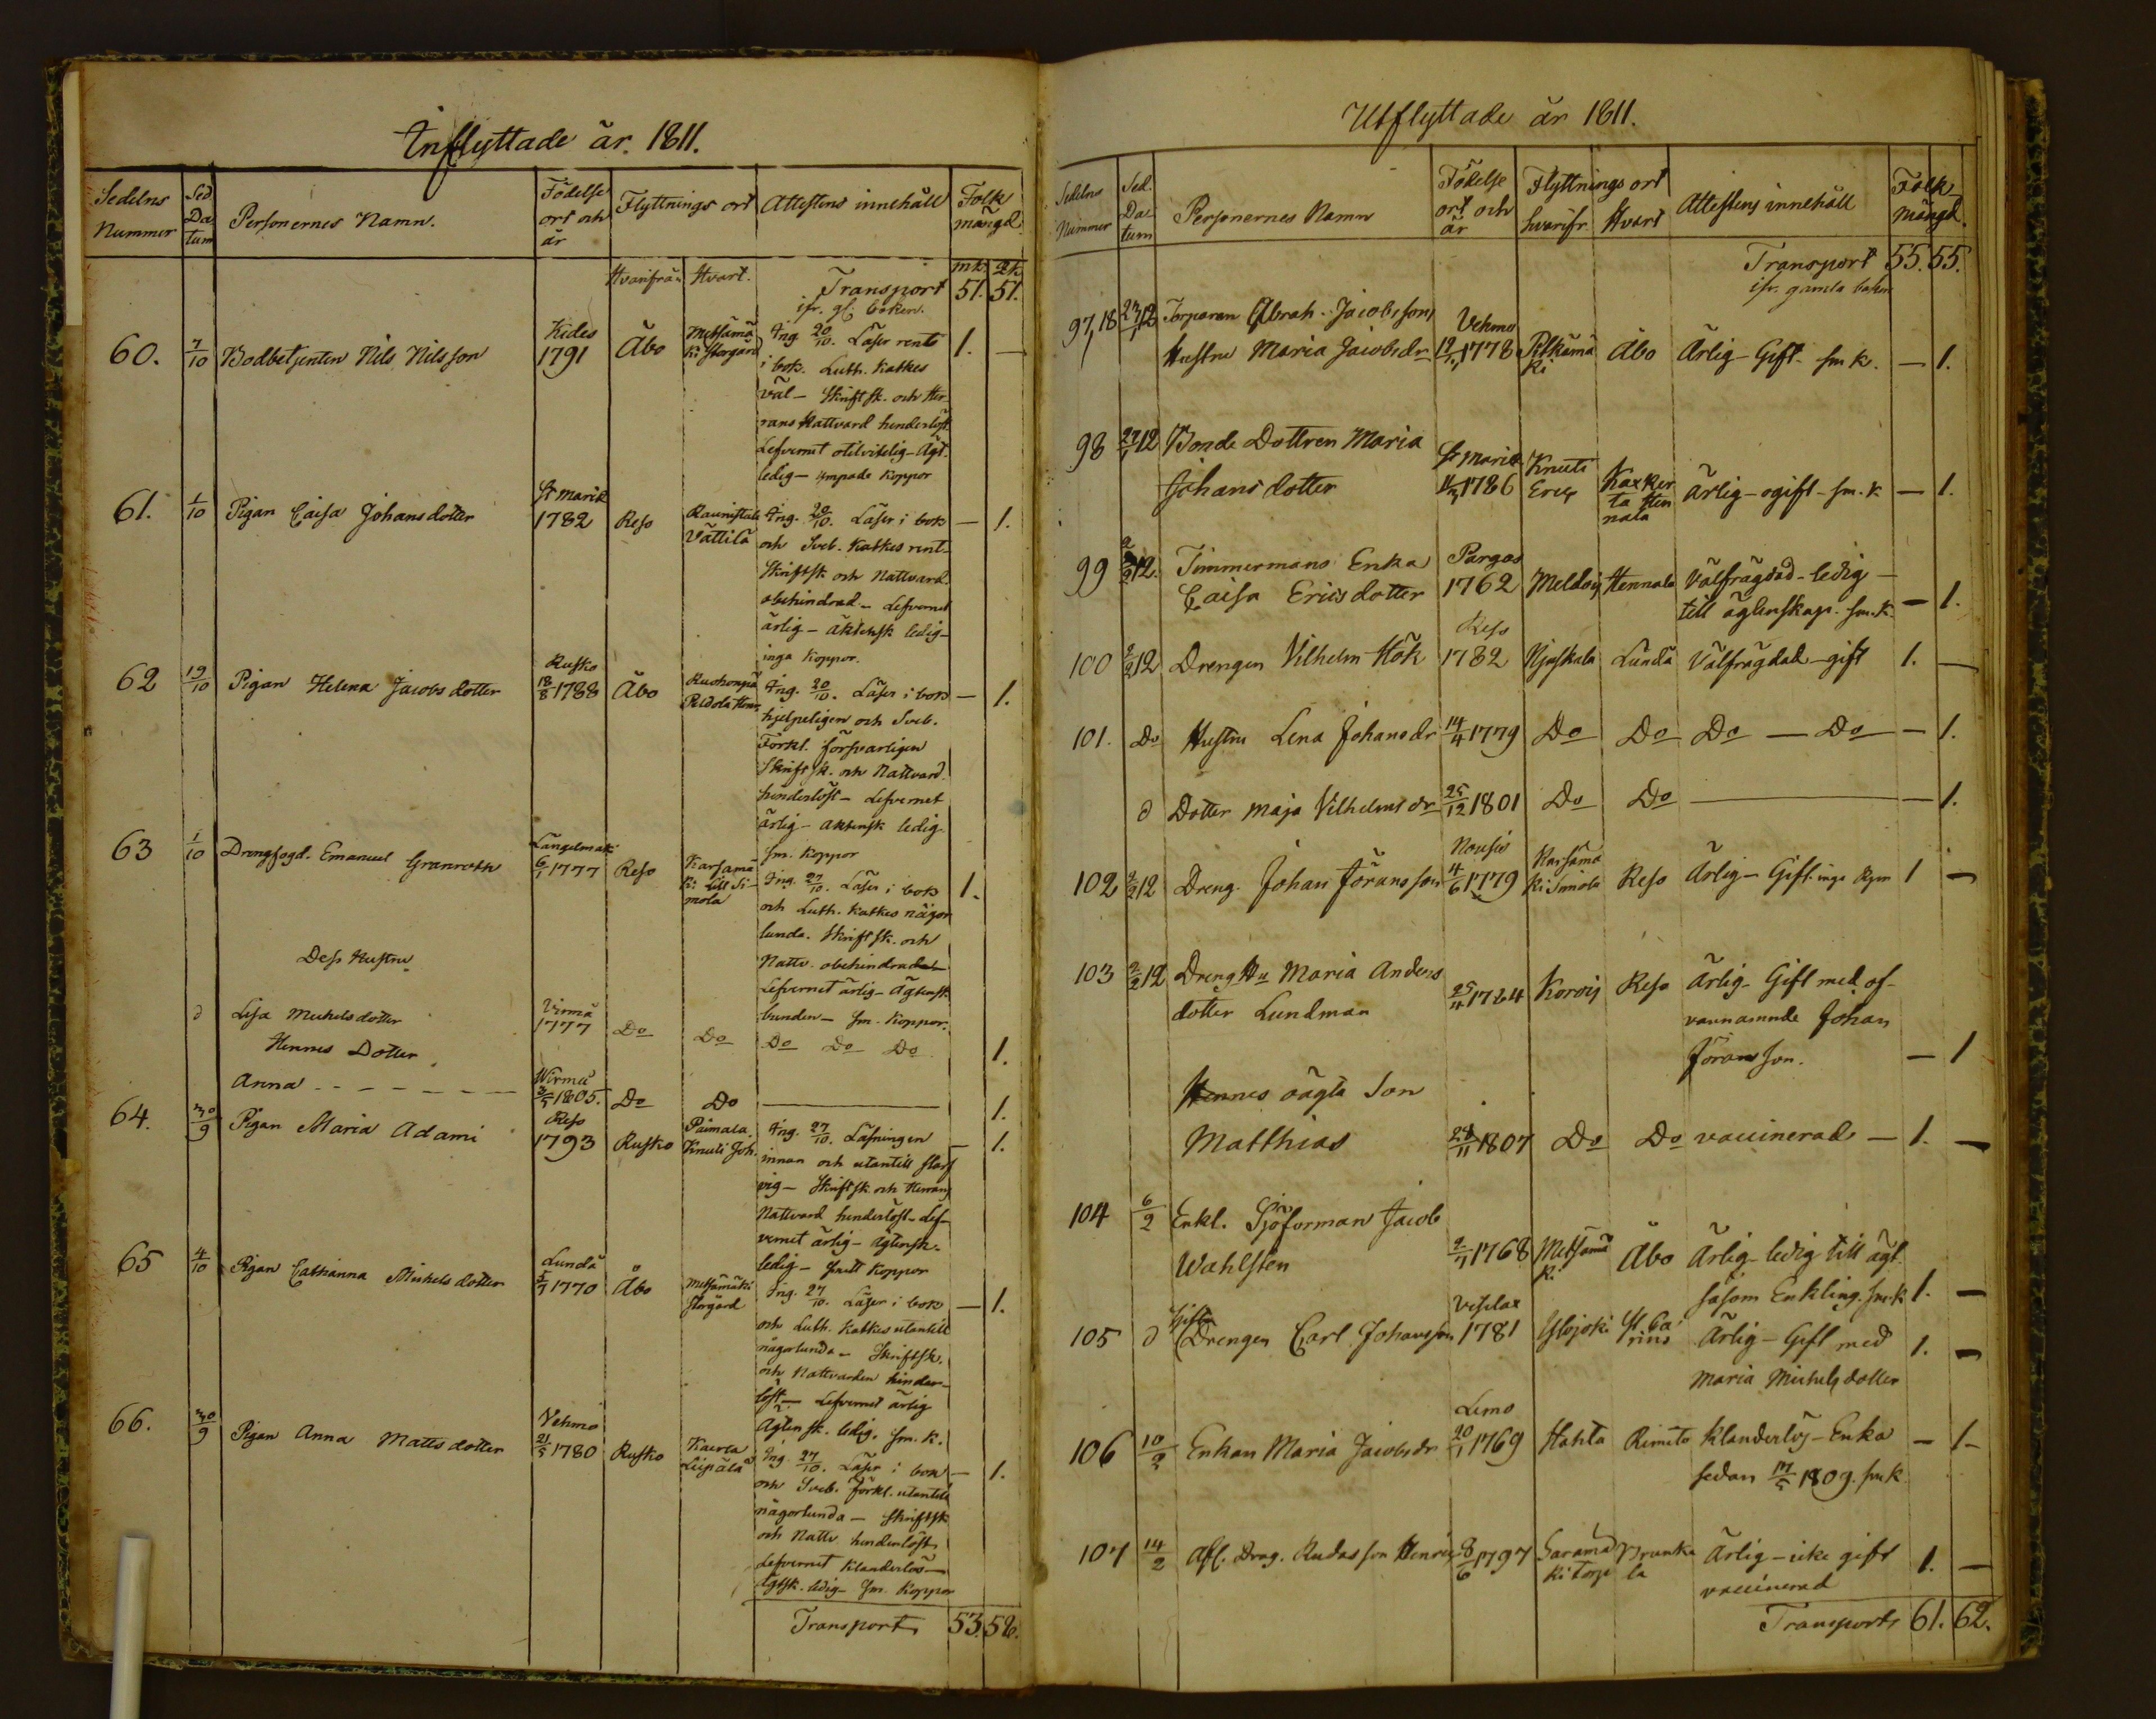 Inflyttade år. 1811.
Sedelns Nummer
Sed. Datum
Personernes Namn.
Födelse ort och år
Flyttnings ort
Attestens innehåll
Folk mängd
Hvarifrån Hvart.
mk. qk.
Transport 51. 51.
ifr. gl. boken.
60. 7/10 Bodbetjenten Nils Nilsson
Kides 1791
Åbo
Metsämäki Storgård
Ing. 20/10. Läser rent 1. —
i bok. Luth. Katkes
väl – Skriftsk. och Her-
rans Nattvard hinderlöst
Lefvernet otilvitelig – Ägt.
ledig – ympade koppor
61. 1/10 Pigan Caisa Johansdotter
St Marie 1782
Reso
Raunistula Vättilä
Ing. 20/10. Läser i bok — 1.
och Sveb. Katkes rent –
Skriftsk och Nattvard
obehindrad – Lefvernet
ärlig – Äktensk ledig –
inga koppor.
62 19/10 Pigan Helena Jacobsdotter
Rusko 18/8 1788
Åbo
Ing. 20/10. Läser i bok — 1.
hjelpeligen och Sveb.
Förkl. försvarligen
Skriftsk. och Nattvard
hinderlöst – Lefvernet
ärlig – Aktensk ledig
sm. koppor
63 1/10 Drengfogd. Emanuel Granroth
Längelmäki 6/1 1777
Reso
Karsamäki Lill Simola
Ing. 27/10. Läser i bok 1.
och Luth. Katkes någor
lunda. Skriftsk. och
Nattv. obehindrad
Lefvernet ärlig – Ägtensk
bunden – sm. koppor.
Dess Hustru
d Lisa Michelsdotter
Virmå 1777
Do Do Do Do Do 1.
Hennes Dotter
Anna - - - - - - -
Wirmå 3/5 1805.
Do Do 1.
64. 30/9 Pigan Maria Adami
Reso 1793
Rusko
Paimala Knuti Joh.
Ing. 27/10. Läsningen — 1.
innan och utantill slarf
vig – Skriftsk. och Herrans
Nattvard hinderlöst – Lef-
vernet ärlig – Ägtensk.
ledig – haft koppor
65 4/10 Pigan Catharina Michelsdotter
Lundå 5/7 1770
Åbo
Metsämäki Storgård
Ing. 27/10. Läser i bok — 1.
och Luth. Katkes utantill
någorlunda – Skriftsk.
och Nattvarden hinder-
löst – Lefvernet ärlig
Ägtensk. ledig. sm. k.
66. 30/9 Pigan Anna Mattsdotter
Vehmo 21/5 1780
Rusko
Kaerla Liipälä
Ing. 27/10. Läser i bok — 1.
och Sveb. Förkl. utantill
någorlunda – Skriftsk
och Nattv hinderlöst,
Lefvernet klanderlös –
Ägtsk. ledig – sm. koppor
Transport 53. 58.
Utflyttade år 1811.
Sedelns Nummer
Sed. Datum
Personernes Namn
Födelse ort och år
Flyttnings ort
hvarifr Hvart
Attestens innehåll
Folk mängd.
Transport 55. 55.
ifr. gamla boken
97,18 27/1 12 Torparen Abrah. Jacobssons
Hustru Maria Jacobsdr
Vehmo 12/11 1778
Pitkämäki
Åbo
Ärlig – Gift – sm k. — 1.
98 27/1 12 Bonde Dottren Maria
Johans dotter
St Marie 1786
Knuts Erik
Ärlig – ogift – sm. k — 1.
99 2/2 12. Timmermans Enka
Caisa Ericsdotter
Pargas 1762
Meldoij
Hennala
Välfrägdad – ledig –
till ägtenskap. sm. k. — 1.
100 2/2 12 Drengen Vilhelm Hök
Reso 1782
Njuskala
Lundå
Välfrägdad – gift 1. —
101. Do Hustru Lena Johansdr
14/4 1779
Do Do Do — Do — 1.
d Dotter Maja Vilhelmsdr
25/12 1801
Do Do — 1.
102 2/2 12 Dreng. Johan Göransson
Nousis 4/6 1779
Karsamäki Simola
Reso
Ärlig – Gift. 1 —
103 2/2 12 Dreng Hu Maria Anders
dotter Lundman
Koroij
Reso
Ärlig – Gift med of-
vannamnde Johan
Göransson. — 1
Hennes oägta Son
Matthias
24/11 1807
Do Do vaccinerad — 1. —
104 6/2 Enkl. Sjöforman Jacob
Wahlsten
2/11 1768
Metsämäki
Åbo
Ärlig – ledig till ägt.
såsom Enkling. sm k 1. —
105 d Gifta Drengen Carl Johansson
Vesilax 1781
Ylojoki
St Carins
Ärlig – Gift med 1. —
Maria Michelsdotter
106 10/2 Enkan Maria Jacobsdr
Lemo 20/1 1769
Hahta
Rimito
Klanderlös – Enka — 1 –
sedan 17/5 1809. sm k.
107 14/2 Afl. Drag. Rudas son Henric
8/6 1797
Saramäki torp
Prunkala
Ärlig – icke gift 1. —
vaccinerad
Transport 61. 62.